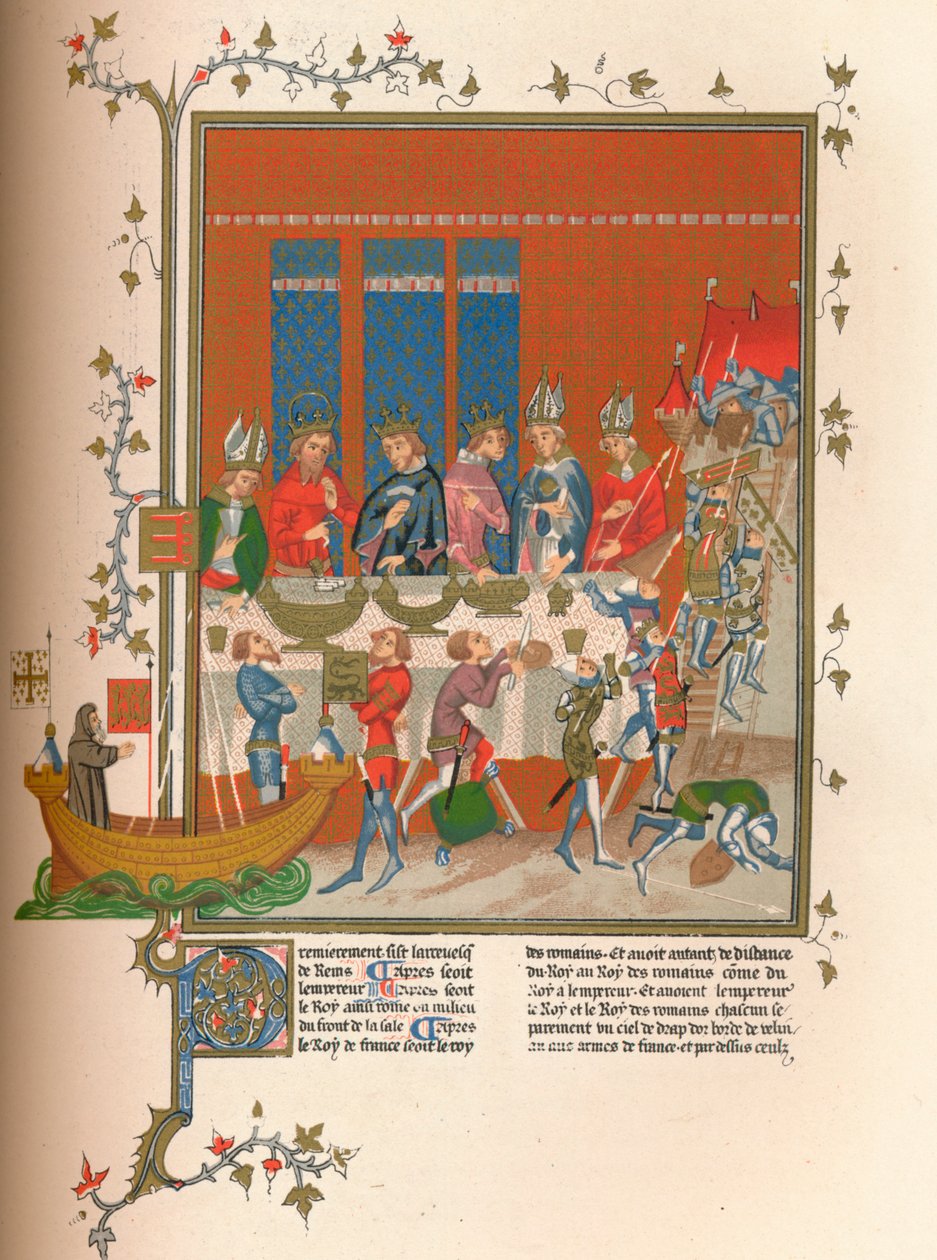 Premierement sist larcevesq̃
de Reims Apres seoit
lempereur Apres seoit
le Roy ainsi come ou milieu
du front de la sale Apres
le Roy de france seoit le roy
des romains. Et avoit autant de distance
du Roy au Roy des romains cõme du
Roy a lempereur. Et avoient lempereur
le Roy et le Roy des romains chascun se
parement un ciel de drap dor borde de velin
au aus armes de france et par dessus ceulz